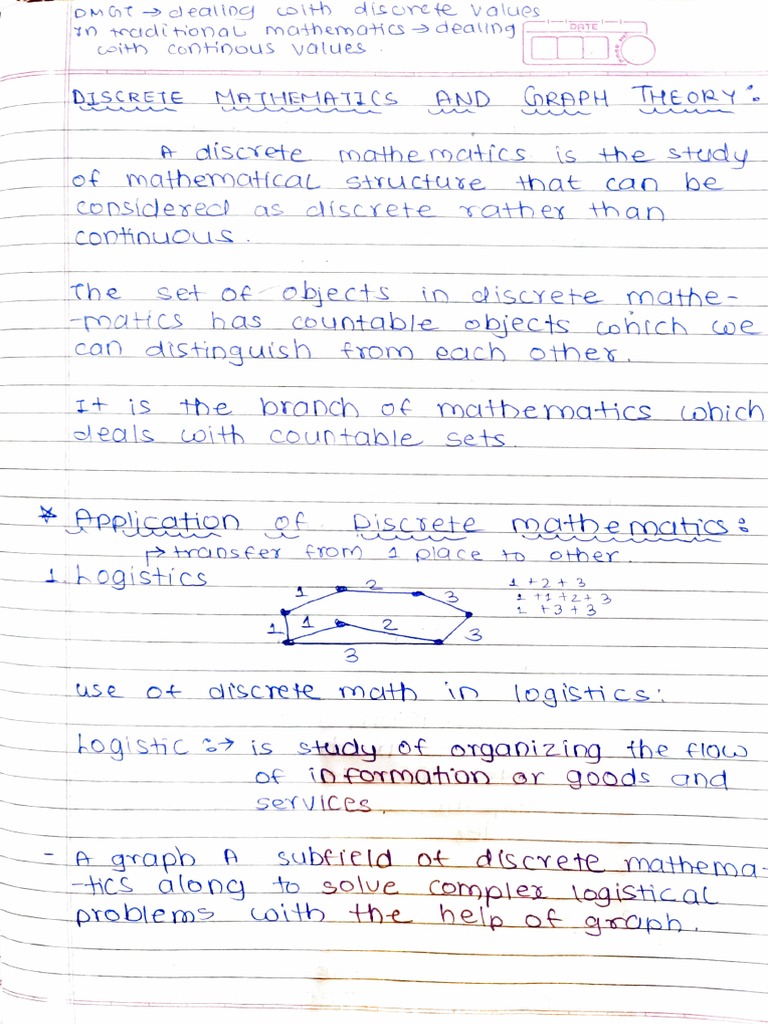 DMGT → dealing with discrete values
in traditional mathematics → dealing
with continous values.
DATE
DISCRETE MATHEMATICS AND GRAPH THEORY:
A discrete mathematics is the study
of mathematical structure that can be
considered as discrete rather than
continuous.
The set of objects in discrete mathe-
-matics has countable objects which we
can distinguish from each other.
It is the branch of mathematics which
deals with countable sets.
* Application of Discrete mathematics:
↱ transfer from 1 place to other.
1. Logistics
1 2 3
1 1 2 3
3
1 + 2 + 3
1 + 1 + 2 + 3
1 + 3 + 3
use of discrete math in logistics:
Logistic :→ is study of organizing the flow
of information or goods and
services.
- A graph A subfield of discrete mathema-
-tics along to solve complex logistical
problems with the help of graph.